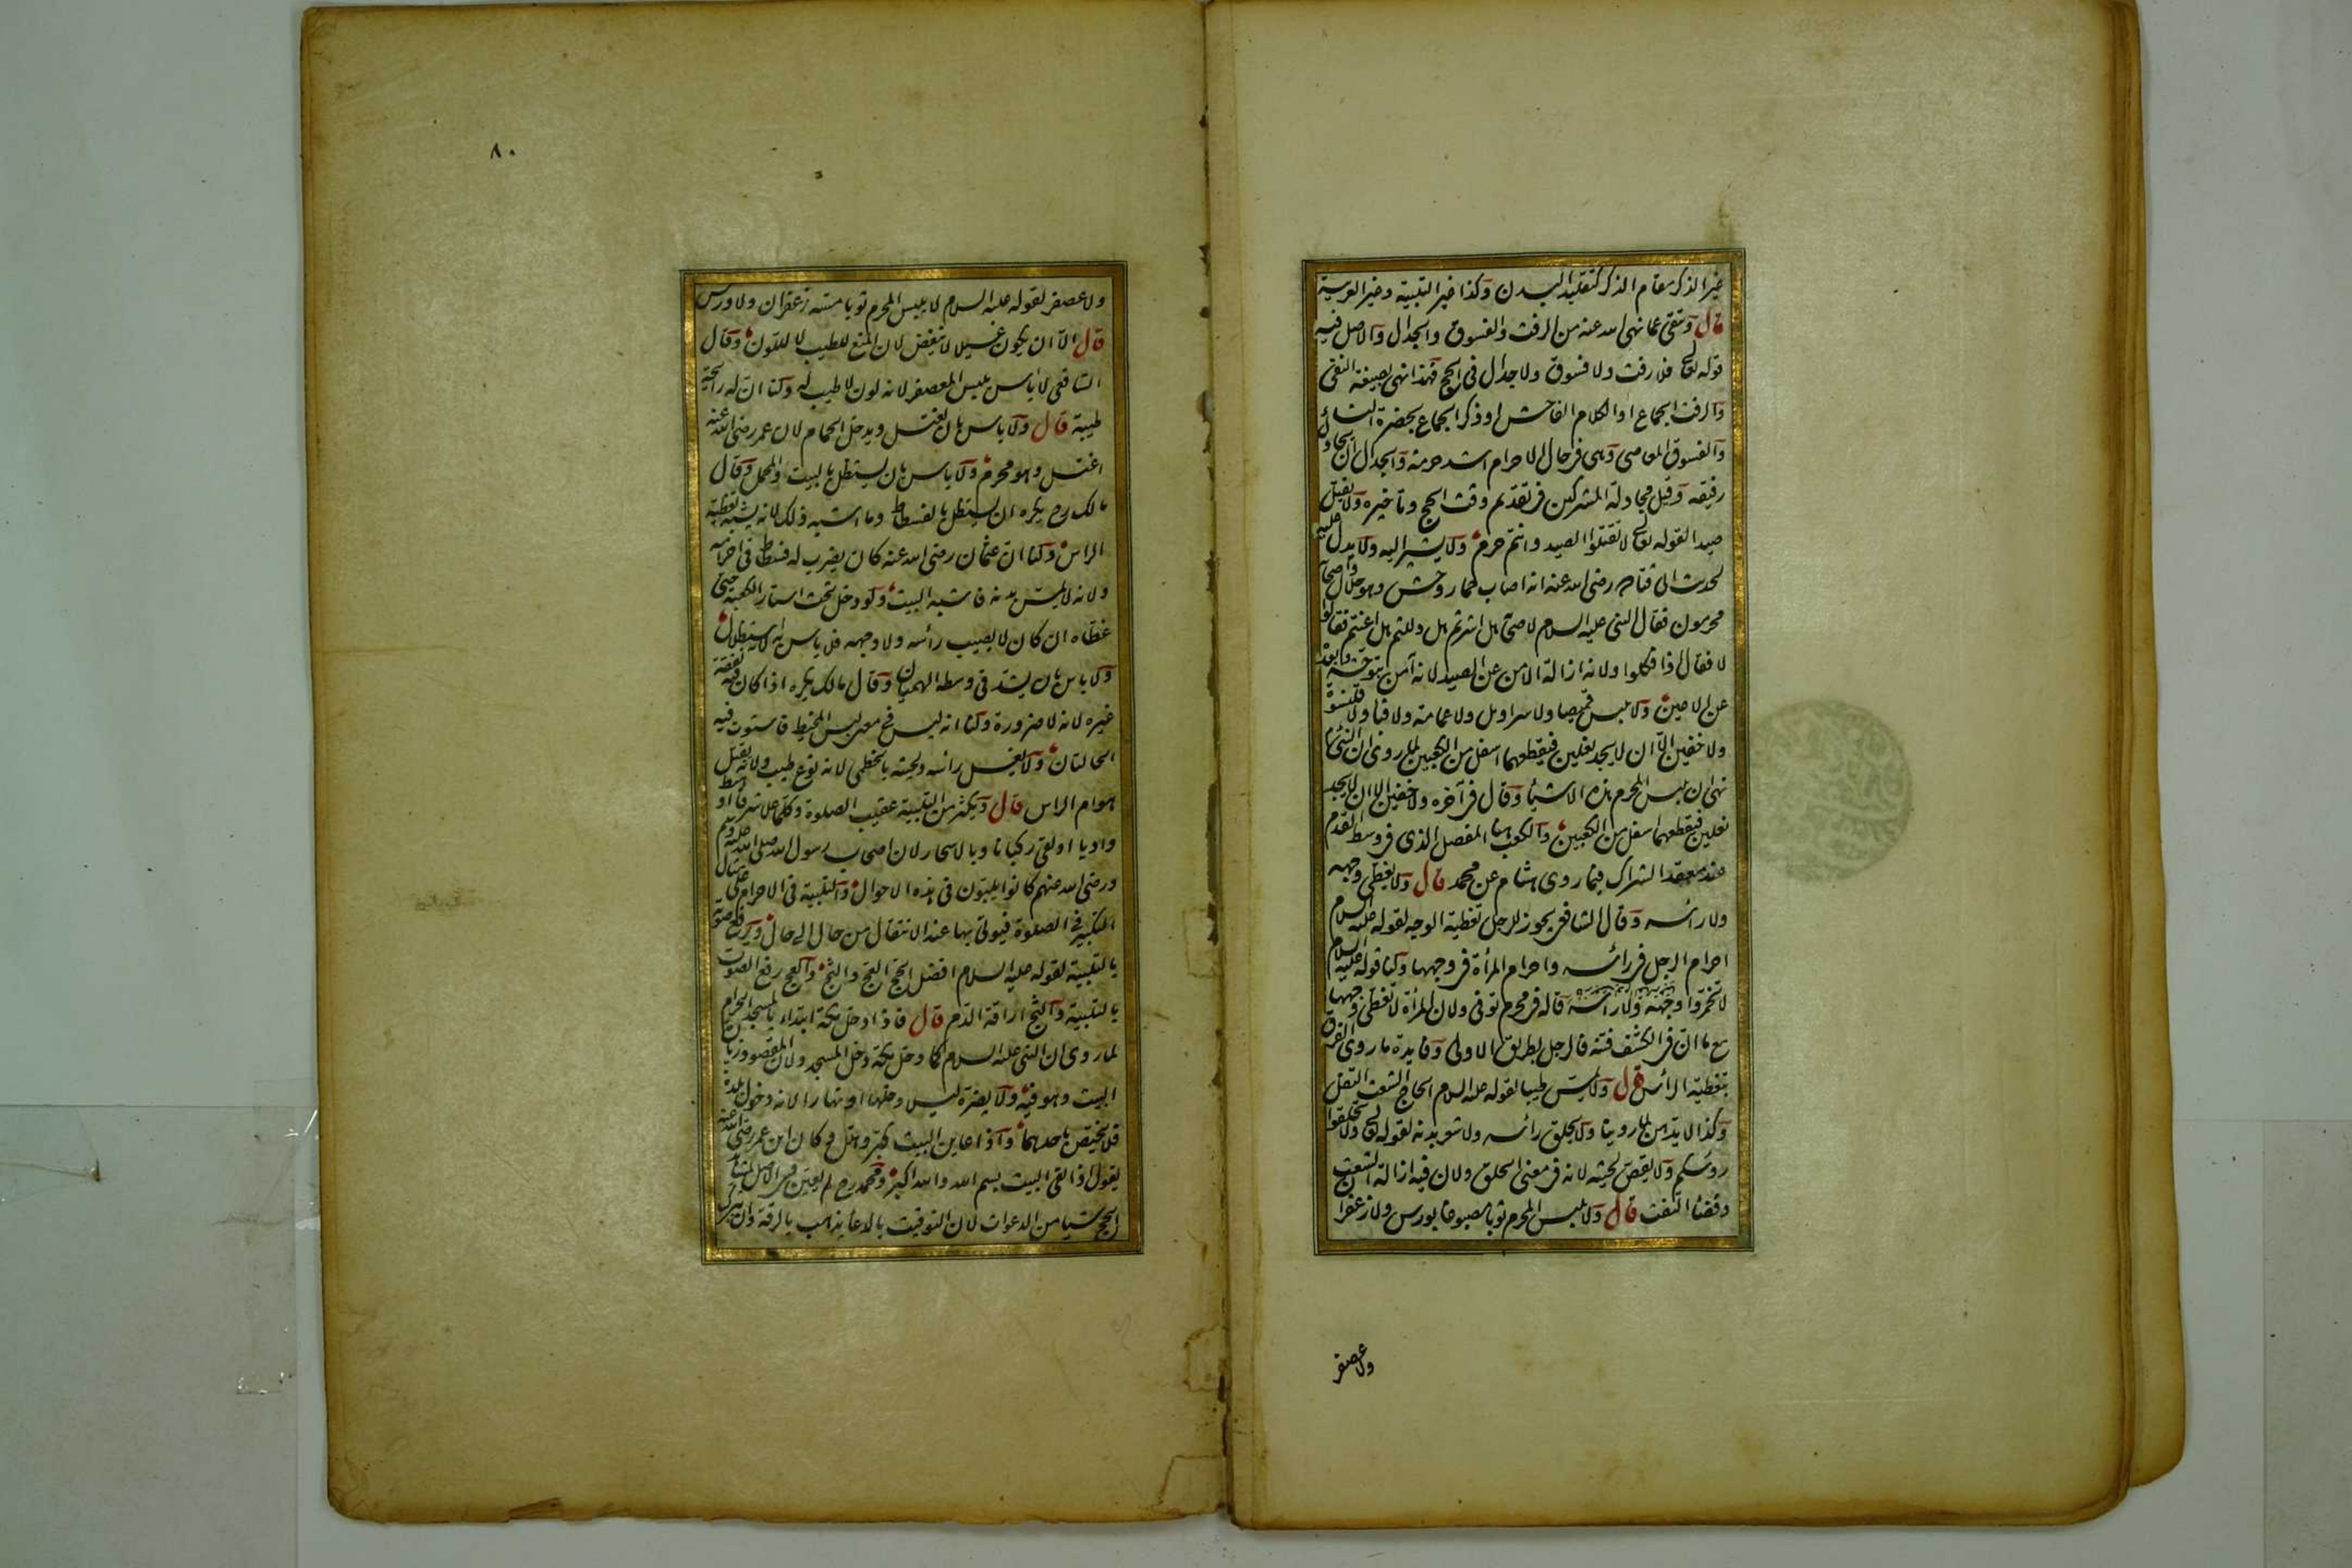 غير الذكر مقام الذكر كتقليد البدن وكذا غير التلبية وغير العربية
قال ويتقى عما نهى الله عنه من الرفث والفسوق والجدال والاصل فيه
قوله تعالى فلا رفث ولا فسوق ولا جدال فى الحج فهذا نهى بصيغة النفى
والرفث الجماع او الكلام الفاحش او ذكر الجماع بحضرة النساء
والفسوق المعاصى وهى فى حال الاحرام اشد حرمة والجدال ان يجادل
رفيقه وقيل مجادلة المشركين فى تقديم وقت الحج وتاخيره ولا يقتل
صيدا لقوله تعالى لا تقتلوا الصيد وانتم حرم ولا يشير اليه ولا يدل عليه
لحديث ابى قتادة رضى الله عنه انه اصاب حمار وحش وهو حلال واصحابه
محرمون فقال النبى عليه السلام لاصحابه هل اشرتم هل دللتم هل اعنتم فقالوا
لا فقال اذا فكلوا ولانه ازالة الامن عن الصيد لانه آمن بتوحشه وبعده
عن الاعين ولا يلبس قميصا ولا سراويل ولا عمامة ولا قبا ولا قلنسوة
ولا خفين الا ان لا يجد نعلين فيقطعهما اسفل من الكعبين لما روى ان النبى عليه السلام
نهى ان يلبس المحرم هذه الاشياء وقال فى آخره ولا خفين الا ان لا يجد
نعلين فيقطعهما اسفل من الكعبين والكعب هنا المفصل الذى فى وسط القدم
عند معقد الشراك فيما روى هشام عن محمد قال ولا يغطى وجهه
ولا رأسه وقال الشافعى يجوز للرجل تغطية الوجه لقوله عليه السلام
احرام الرجل فى رأسه واحرام المرأة فى وجهها ولنا قوله عليه السلام
لا تخمروا وجهه ولا رأسه قاله فى محرم توفى ولان المرأة لا تغطى وجهها
مع ان فى الكشف فتنة فالرجل بطريق الاولى وفايدة ما روى الفرق
بتغطية الرأس قال ولا يمس طيبا لقوله عليه السلام الحاج الشعث التفل
وكذا لا يدهن لما روينا ولا يحلق رأسه ولا شعر بدنه لقوله تعالى ولا تحلقوا
رؤسكم ولا يقص لحيته لانه فى معنى الحلق ولان فيه ازالة الشعث
وقضاء التفث قال ولا يلبس المحرم ثوبا مصبوغا بورس ولا زعفران
ولا عصفر
٨٠
ولا عصفر لقوله عليه السلام لا يلبس المحرم ثوبا مسه زعفران ولا ورس
قال الا ان يكون غسيلا لا ينفض لان المنع للطيب لا للون وقال
الشافعى لا باس بلبس المعصفر لانه لون لا طيب له ولنا ان له رائحة
طيبة قال ولا باس بان يغتسل ويدخل الحمام لان عمر رضى الله عنه
اغتسل وهو محرم ولا باس بان يستظل بالبيت والمحمل وقال
مالك رح يكره ان يستظل بالفسطاط وما اشبه ذلك لانه يشبه تغطية
الراس ولنا ان عثمان رضى الله عنه كان يضرب له فسطاط فى احرامه
ولانه لا يمس بدنه فاشبه البيت ولو دخل تحت استار الكعبة حتى
غطاه ان كان لا يصيب رأسه ولا وجهه فلا باس به لانه استظلال
ولا باس بان يشد فى وسطه الهميان وقال مالك يكره اذا كان فيه نفقة
غيره لانه لا ضرورة ولنا انه ليس فى معنى لبس المخيط فاستوت فيه
الحالتان ولا يغسل راسه ولحيته بالخطمى لانه نوع طيب ولانه يقتل
هوام الراس قال ويكثر من التلبية عقيب الصلوة وكلما علا شرفا او هبط
واديا او لقى ركبانا وبالاسحار لان اصحاب رسول الله صلى الله عليه وسلم
ورضى الله عنهم كانوا يلبون فى هذه الاحوال والتلبية فى الاحرام على مثال
التكبير فى الصلوة فيؤتى بها عند الانتقال من حال الى حال ويرفع صوته
بالتلبية لقوله عليه السلام افضل الحج العج والثج والعج رفع الصوت
بالتلبية والثج اراقة الدم قال فاذا دخل مكة ابتداء بالمسجد الحرام
لما روى ان النبى عليه السلام كما دخل مكة دخل المسجد ولان المقصود زيارة
البيت وهو فيه ولا يضره ليلا دخلها او نهارا لانه دخول بلدة
فلا يختص باحدهما واذا عاين البيت كبر وهلل وكان ابن عمر رضى الله عنه
يقول اذا لقى البيت بسم الله والله اكبر ومحمد رح لم يعين فى الاصل لمشاهد
الحج شيا من الدعوات لان التوقيت بالدعا يذهب بالرقة وان تبرك